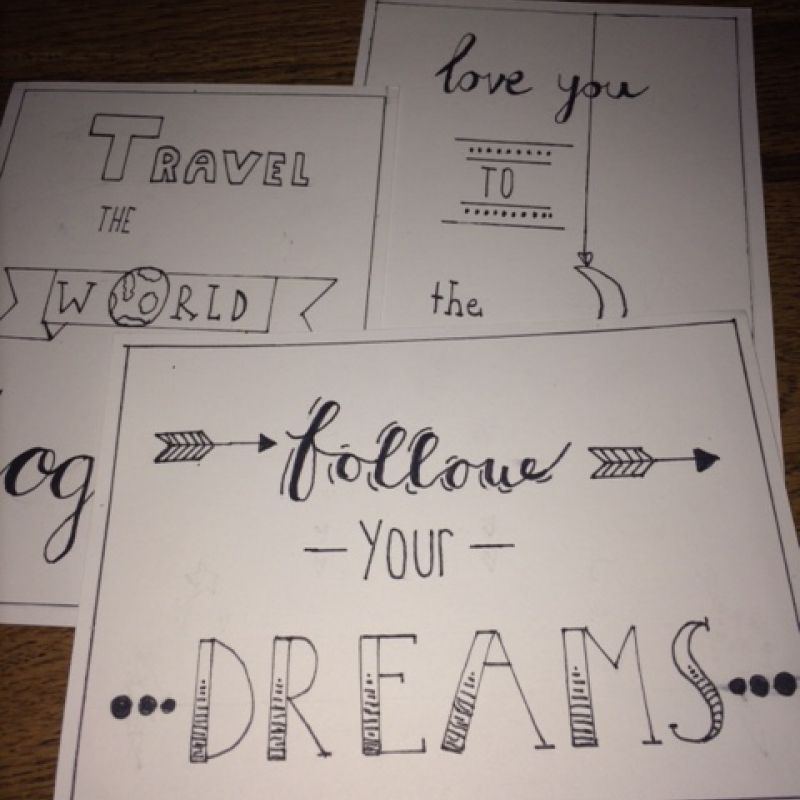 TRAVEL
THE
WORLD
og
love you
TO
the
follow
YOUR
DREAMS